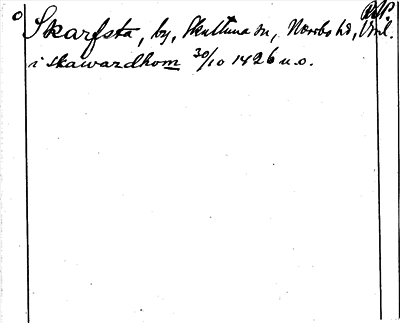 Skarfsta, by, Skultuna sn, Norrbo hd, Vml.
i skawardhom 30/10 1426 u.o.